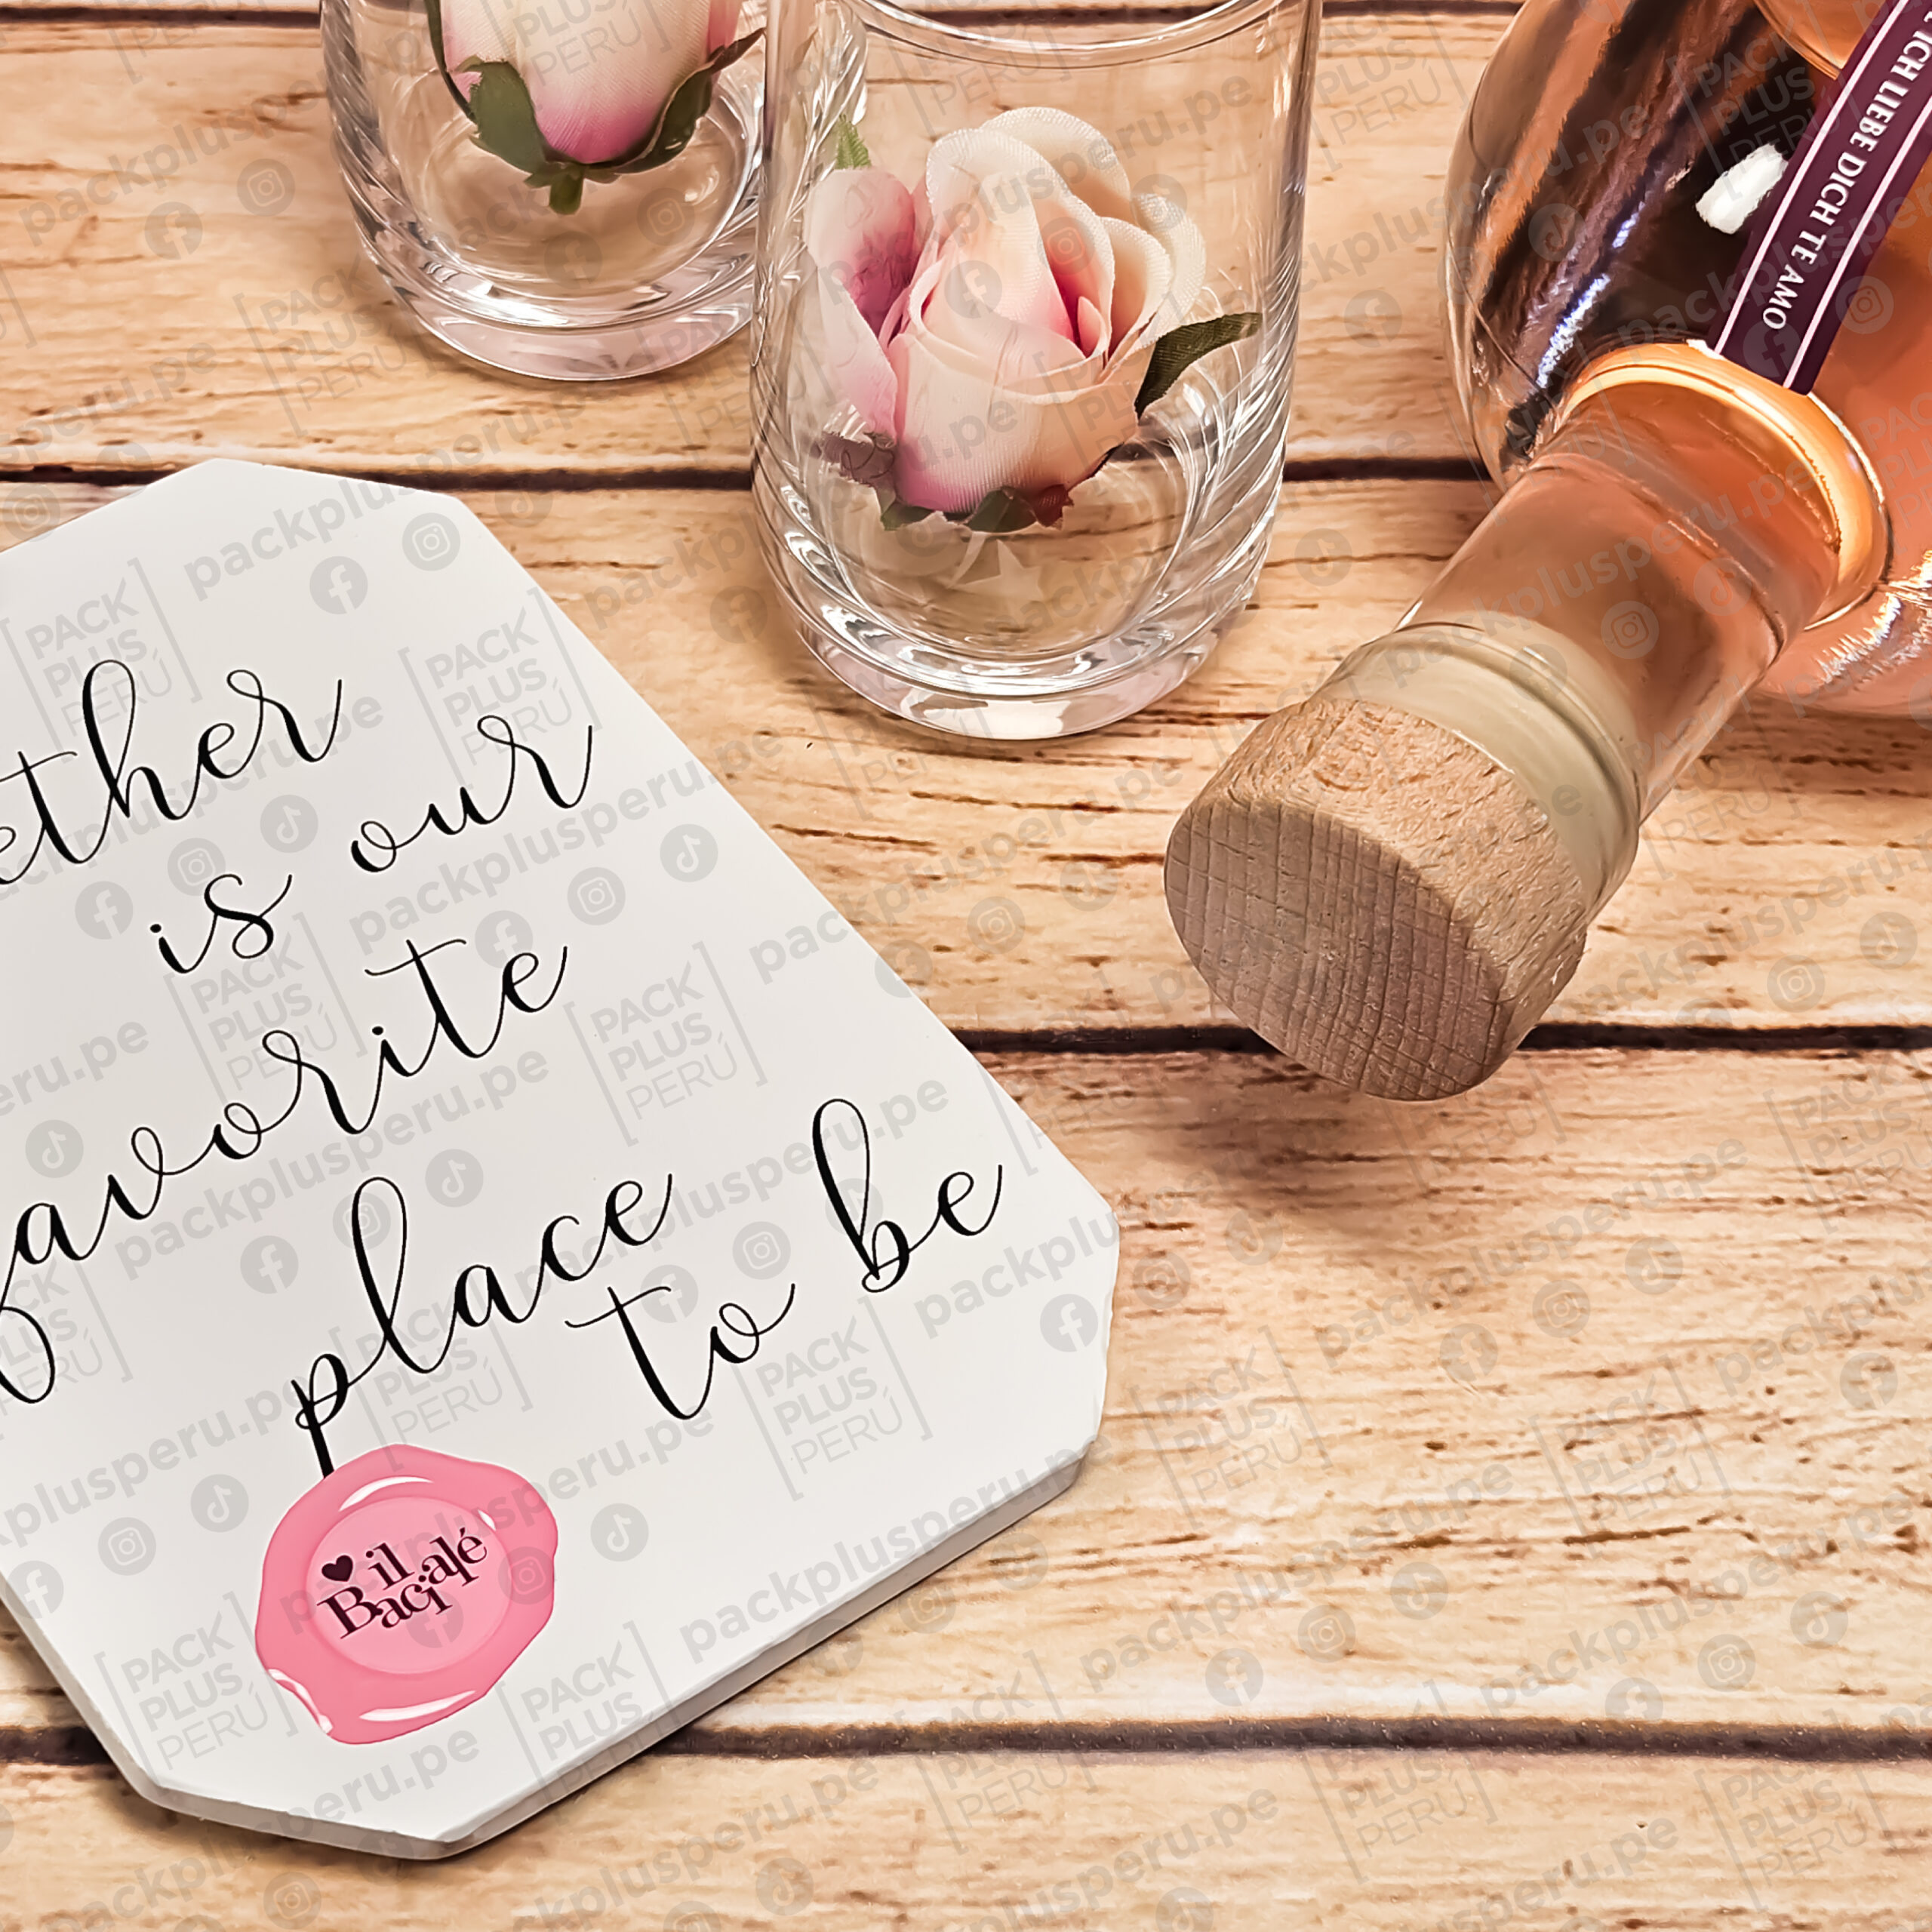 ether
is our
favorite
place
to be
il
Bacialé
ICH LIEBE DICH TE AMO
PACK
PLUS
PERÚ
packplusperu.pe